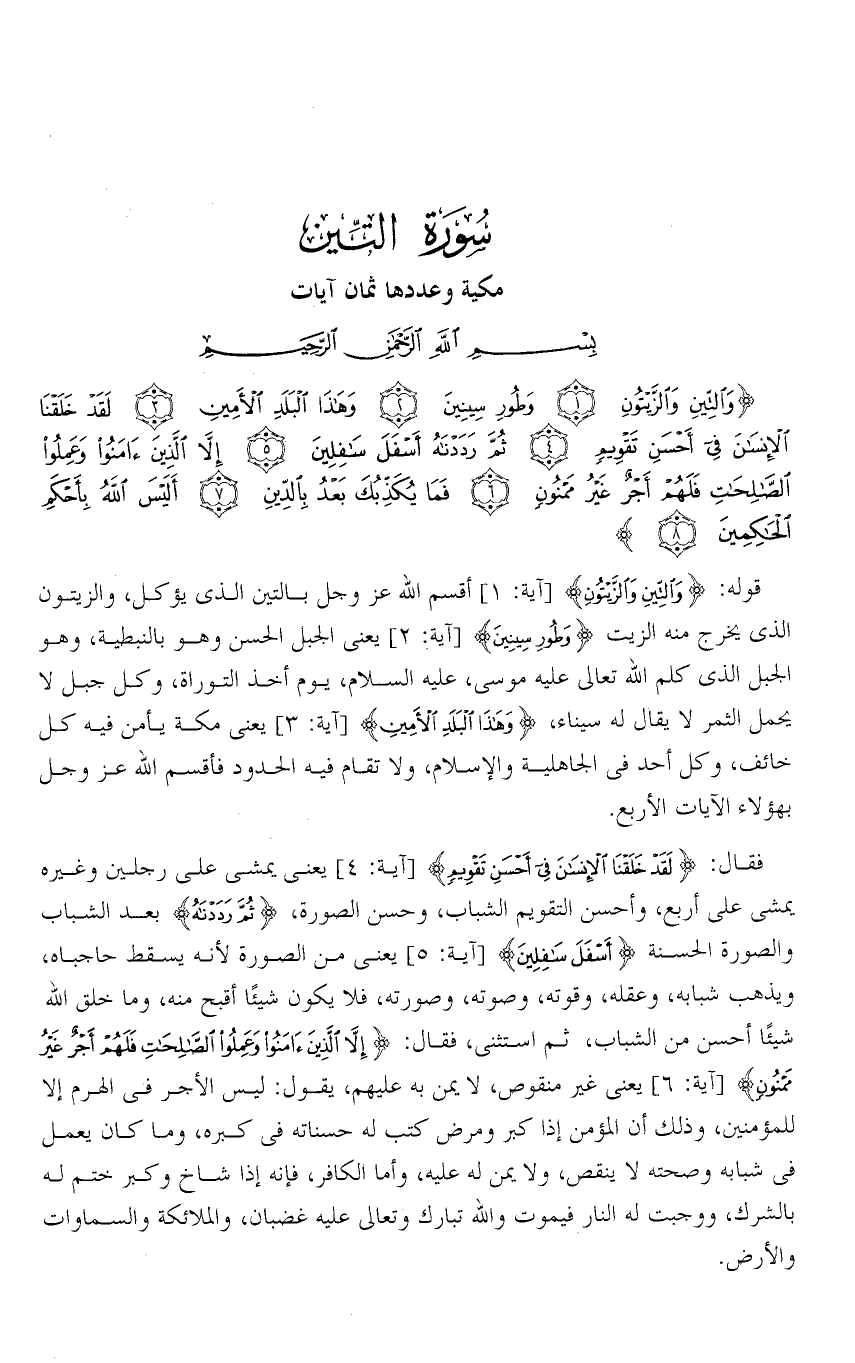 سُورَة التِّين
مكية وعددها ثمان آيات
بِسْمِ ٱللَّهِ ٱلرَّحْمَٰنِ ٱلرَّحِيمِ
﴿وَٱلتِّينِ وَٱلزَّيْتُونِ ۝١ وَطُورِ سِينِينَ ۝٢ وَهَٰذَا ٱلْبَلَدِ ٱلْأَمِينِ ۝٣ لَقَدْ خَلَقْنَا
ٱلْإِنسَٰنَ فِىٓ أَحْسَنِ تَقْوِيمٍ ۝٤ ثُمَّ رَدَدْنَٰهُ أَسْفَلَ سَٰفِلِينَ ۝٥ إِلَّا ٱلَّذِينَ ءَامَنُوا۟ وَعَمِلُوا۟
ٱلصَّٰلِحَٰتِ فَلَهُمْ أَجْرٌ غَيْرُ مَمْنُونٍ ۝٦ فَمَا يُكَذِّبُكَ بَعْدُ بِٱلدِّينِ ۝٧ أَلَيْسَ ٱللَّهُ بِأَحْكَمِ
ٱلْحَٰكِمِينَ ۝٨﴾
قوله: ﴿وَٱلتِّينِ وَٱلزَّيْتُونِ﴾ [آية: ١] أقسم الله عز وجل بالتين الذى يؤكل، والزيتون
الذى يخرج منه الزيت ﴿وَطُورِ سِينِينَ﴾ [آية: ٢] يعنى الجبل الحسن وهو بالنبطية، وهو
الجبل الذى كلم الله تعالى عليه موسى، عليه السلام، يوم أخذ التوراة، وكل جبل لا
يحمل الثمر لا يقال له سيناء، ﴿وَهَٰذَا ٱلْبَلَدِ ٱلْأَمِينِ﴾ [آية: ٣] يعنى مكة يأمن فيه كل
خائف، وكل أحد فى الجاهلية والإسلام، ولا تقام فيه الحدود فأقسم الله عز وجل
بهؤلاء الآيات الأربع.
فقال: ﴿لَقَدْ خَلَقْنَا ٱلْإِنسَٰنَ فِىٓ أَحْسَنِ تَقْوِيمٍ﴾ [آية: ٤] يعنى يمشى على رجلين وغيره
يمشى على أربع، وأحسن التقويم الشباب، وحسن الصورة، ﴿ثُمَّ رَدَدْنَٰهُ﴾ بعد الشباب
والصورة الحسنة ﴿أَسْفَلَ سَٰفِلِينَ﴾ [آية: ٥] يعنى من الصورة لأنه يسقط حاجباه،
ويذهب شبابه، وعقله، وقوته، وصوته، وصورته، فلا يكون شيئًا أقبح منه، وما خلق الله
شيئًا أحسن من الشباب، ثم استثنى، فقال: ﴿إِلَّا ٱلَّذِينَ ءَامَنُوا۟ وَعَمِلُوا۟ ٱلصَّٰلِحَٰتِ فَلَهُمْ أَجْرٌ غَيْرُ
مَمْنُونٍ﴾ [آية: ٦] يعنى غير منقوص، لا يمن به عليهم، يقول: ليس الأجر فى الهرم إلا
للمؤمنين، وذلك أن المؤمن إذا كبر ومرض كتب له حسناته فى كبره، وما كان يعمل
فى شبابه وصحته لا ينقص، ولا يمن له عليه، وأما الكافر، فإنه إذا شاخ وكبر ختم له
بالشرك، ووجبت له النار فيموت والله تبارك وتعالى عليه غضبان، والملائكة والسماوات
والأرض.